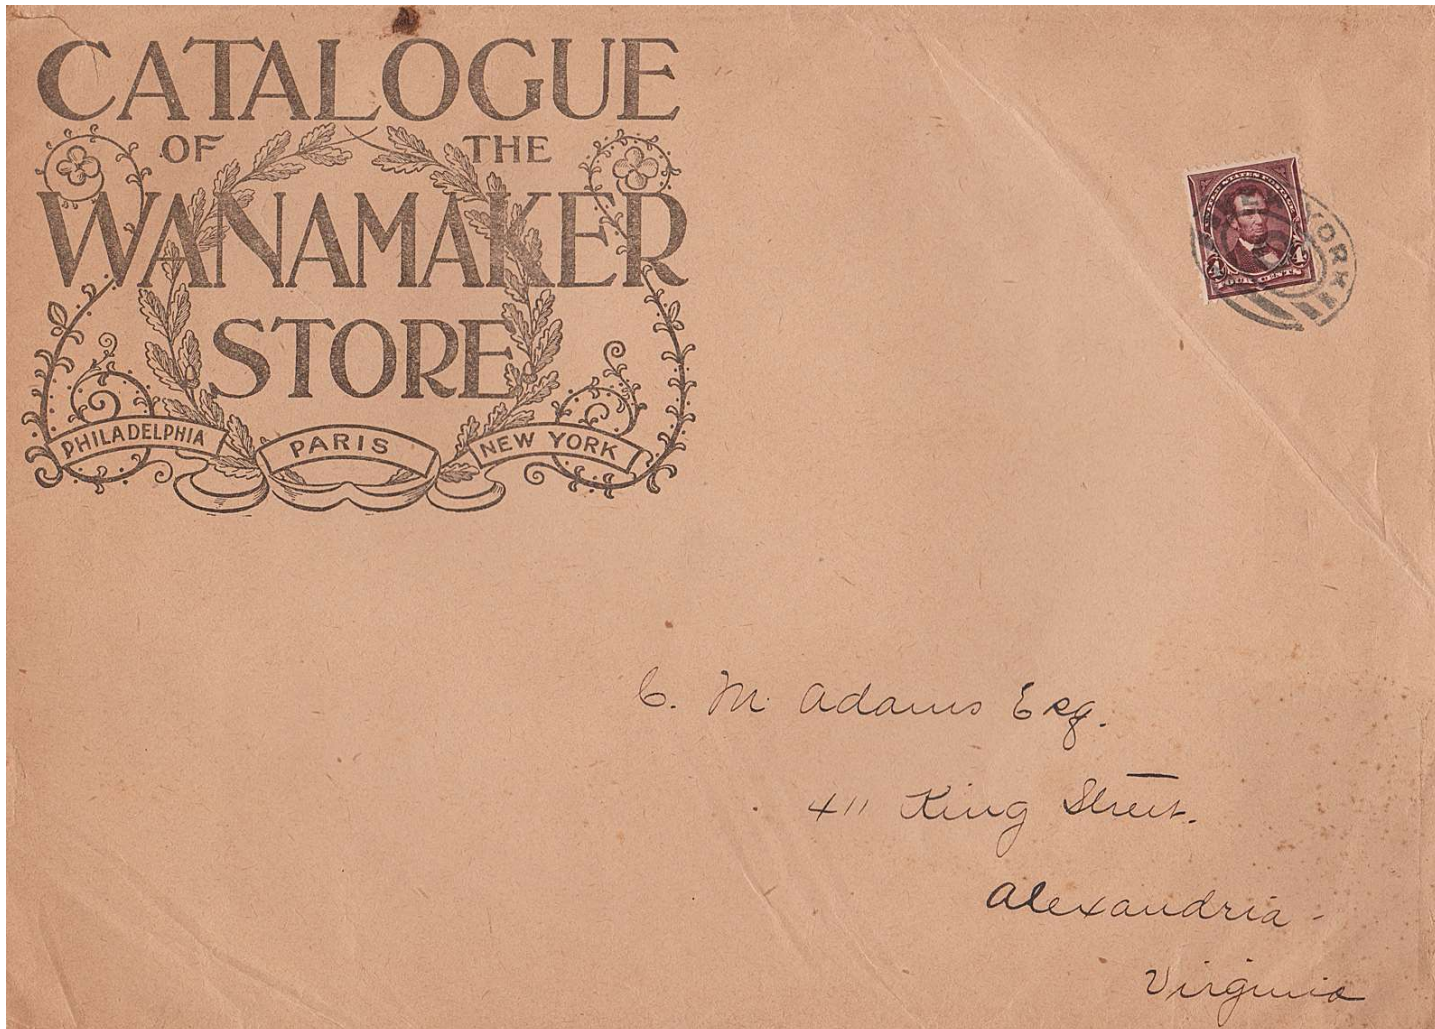 CATALOGUE
OF THE
WANAMAKER
STORE
PHILADELPHIA PARIS NEW YORK
UNITED STATES POSTAGE
4 4
FOUR CENTS
YORK
C. M. Adams Esq.
411 King Street.
Alexandria
Virginia